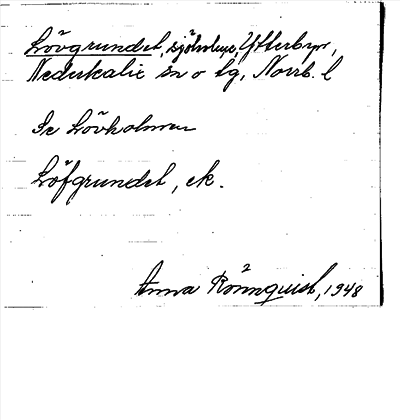 Lövgrundet, sjöholme, Ytterbyn,
Nederkalix sn o tg, Norrb. l
Se Lövholmen
Löfgrundet, ek.
Anna Rönnquist, 1948